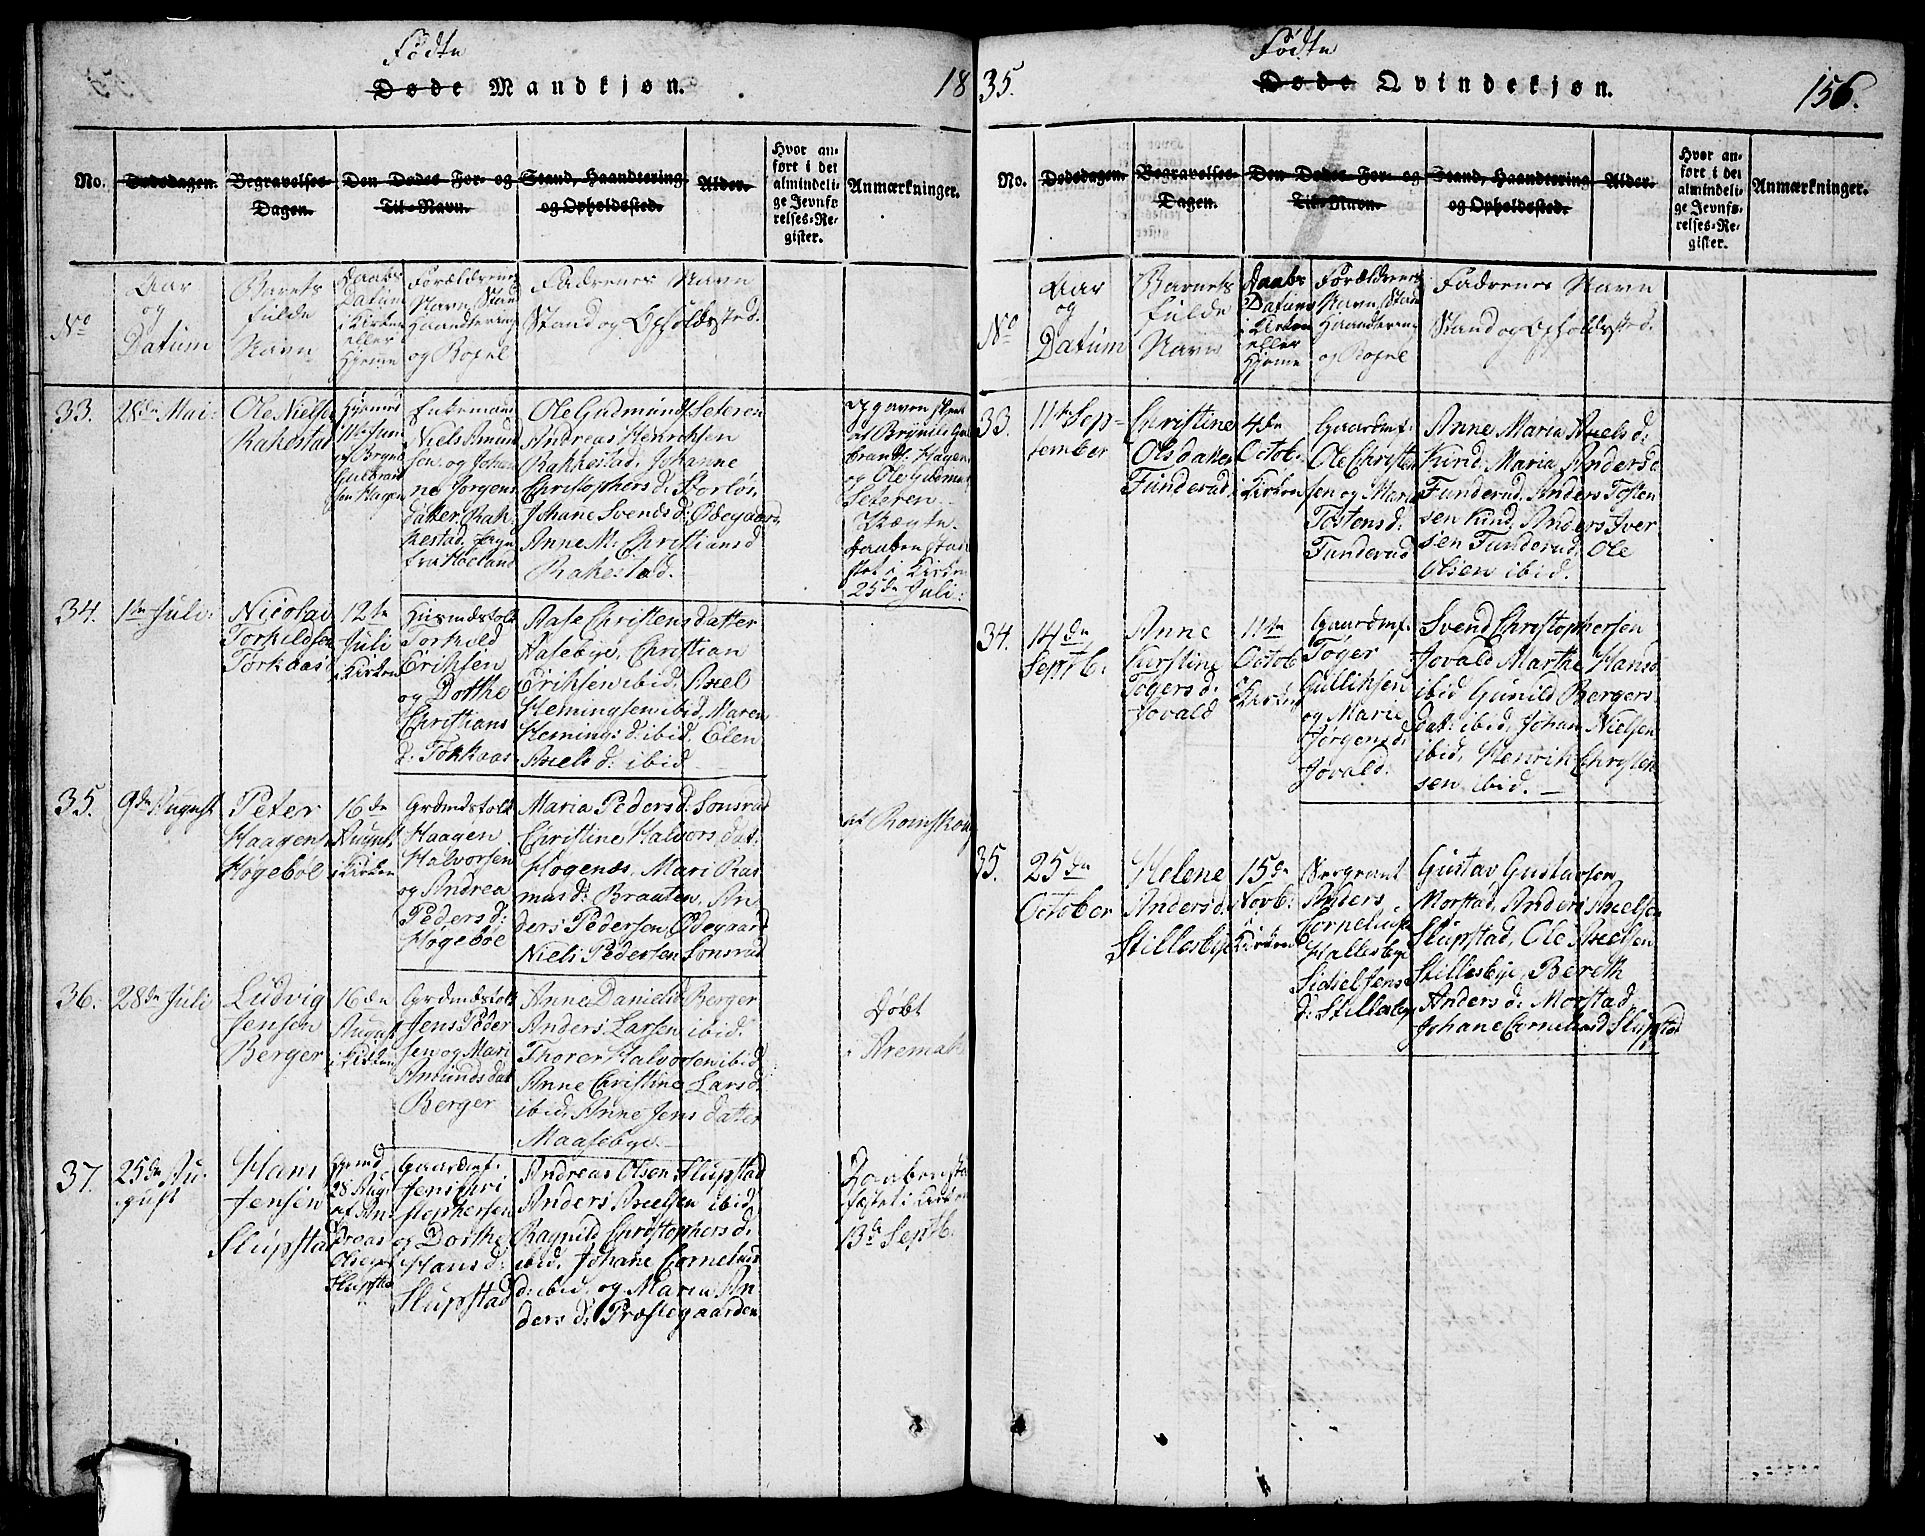 Fødte
Døde Mandkjøn.
18
No.
Dødsdagen.
Begravelses-
Dagen.
Den Dødes For- og
Til-Navn.
Stand, Haandtering
og Opholdssted.
Alder.
Hvor an-
ført i det
almindeli-
ge Jevnfø-
relses-Re-
gister.
Anmærkninger.
No
Aar
og
Datum
Barnets
fulde
Navn
Daabs
Datum
i Kirken
eller
Hjeme
Forældrenes
Navn, Stand
Haandtering
og Bopæl
Fadrenes Navn
Stand og Opholdssted.
33.
28de Mai:
Ole Nielsen
Rakestad
Hjemed
11te Juni
af Brynild
Gulbrand
sen Hagen
Enkemand
Niels Amund
sen og Johan
ne Jorgens
datter Rak-
kestad,
fra Høland
Ole Gudmunds. Seteren
Andreas Henrichsen
Rakkestad, Johanne
Christophers d: Korlös,
Johane Svends d: Ödegaard
Anne M: Christians d
Rakestad.
af Brynild Gul
brands: Hagen
og Ole Gudmunds
Seteren
Ægte.
Daaben stad
fæstet i Kirken
25de Juli:
34.
1de Juli:
Nicolai
Torkildsen
Torkaas
12te
Juli
i Kirken
Husmdsfolk
Torkild
Erichsen
og Dorthe
Christians
d: Torkaas
Aase Christensdatter
Aasebye, Christian
Erichsen ibid, Axel
Hemingsen ibid, Maren
Hemings d: ibid. Elen
Axels d: ibid
35.
9de August
Peter
Haagens.
Høgebøl
16de
August
i Kirken
Grdmdsfolk
Haagen
Halvorsen
og Andrea
Peders d:
Høgeböl
Maria Peders d: Sonsrud
Christine Halvors dat-
Hogenæs, Mari Ras
mus d: Braaten, An
ders Pedersen, Ödegaard
Niels Pedersen Sonsrud
at Römskoug
36.
28de Juli
Ludvig
Jensen
Berger
16de
August
i Kirken
Grdmdsfolk
Jens Peder
sen og Mari
Amunds dat
Berger
Anne Daniels d Berger
Anders Larsen ibid.
Thorer Halvorsen ibid
Anne Christine Lars d.
ibid, Anne Jens datter
Maasebye.
Döbt
i Aremark
37.
25de Au-
gust
Hans
Jensen
Slupstad
Hjemd
28 Aug:
af An-
dreas
Olsen
Slupstad
Gaardmf.
Jens Chri
stophersen
og Dorthe
Hans d:
Slupstad
Andreas Olsen Slupstad
Anders Axelsen ibid,
Ragnild Christophers d:
ibid, Johane Cornelius
d: ibid, og Maria An
ders d: Præstegaarden
Daaben stad
fæstet i Kirken
13de Septb:
35.
Fødte
Døde Qvindekjøn.
156.
No.
Dødsdagen.
Begravelses-
Dagen.
Den Dødes For- og
Til-Navn.
Stand, Haandtering
og Opholdssted.
Alder.
Hvor an-
ført i det
almindeli-
ge Jevnfø-
relses-Re-
gister.
Anmærkninger.
No
Aar
og
Datum
Barnets
fulde
Navn
Daabs
Datum
i Kirken
eller
Hjeme
Forældrenes
Navn, Stand
Haandtering
og Bopæl
Fadrenes Navn
Stand og Opholdssted.
33.
11te Sep-
tember
Christine
Olsdatter
Funderud
4de
Octob:
i Kirken
Gaardmf:
Ole Christen
sen og Maria
Tostens d:
Funderud
Anne Maria Axels d:
Kind, Maria Anders d.
Funderud, Anders Tosten
sen Kind, Anders Iver
sen Funderud, Ole
Olsen ibid.
34.
14de
Septb:
Anne
Kirstine
Togers d:
Jovald
11te
Octob:
i Kirken
Gaardmf.
Töger
Gulliksen
og Marie
Jörgens d.
Jovald.
Svend Christophersen
Jovald Marthe Hans d
ibid Gunild Bergers
dat: ibid, Johan Nielsen
ibid, Henrik Christen
sen ibid.
35.
25de
October
Helene
Anders d.
Stillesbye
15de
Novb:
i Kirken
Sergeant
Anders
Cornelius
Hallesbye
Sidsel Jens
d: Stillesbye
Gustav Gustavsen
Morstad, Anders Axelsen
Slupstad, Ole Axelsen
Stillesbye, Bereth
Anders d: Morstad,
Johane Cornelius d Slupstad